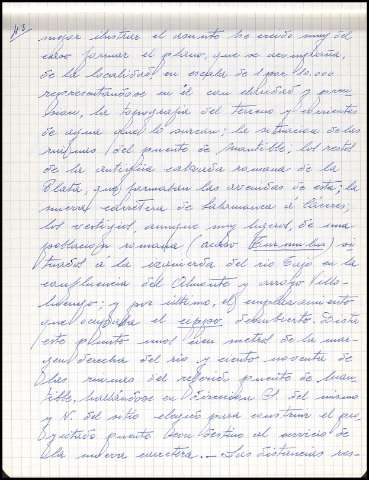 nº 3
mejor ilustrar el asunto he creido muy del
caso formar el plano, que se acompaña,
de la localidad en escala de 1 por 10.000
representandose en él con claridad y
la topografia del terreno y corrientes
de agua que lo surcan; la situacion de las
ruinas del puente de Mantible; los restos
de la antigua calzada romana de la
Plata, que formaban las avenidas de esta; la
nueva carretera de Salamanca á Cáceres;
los vestigios, aunque muy ligeros, de una
poblacion romana (acaso Turmulus) si-
tuados á la izquierda del rio Tajo en la
confluencia del Almonte y arroyo Villo-
luengo; y por último, el emplazamiento
que ocupaba el cippo descubierto. Dista
este punto unos cien metros de la mar-
gen derecha del rio y ciento noventa de
las ruinas del referido puente de Man-
tible, hallandose en direccion O. del mismo
y N. del sitio elegido para construir el pro-
yectado puente con destino al servicio de
la nueva carretera. — Las distancias res-